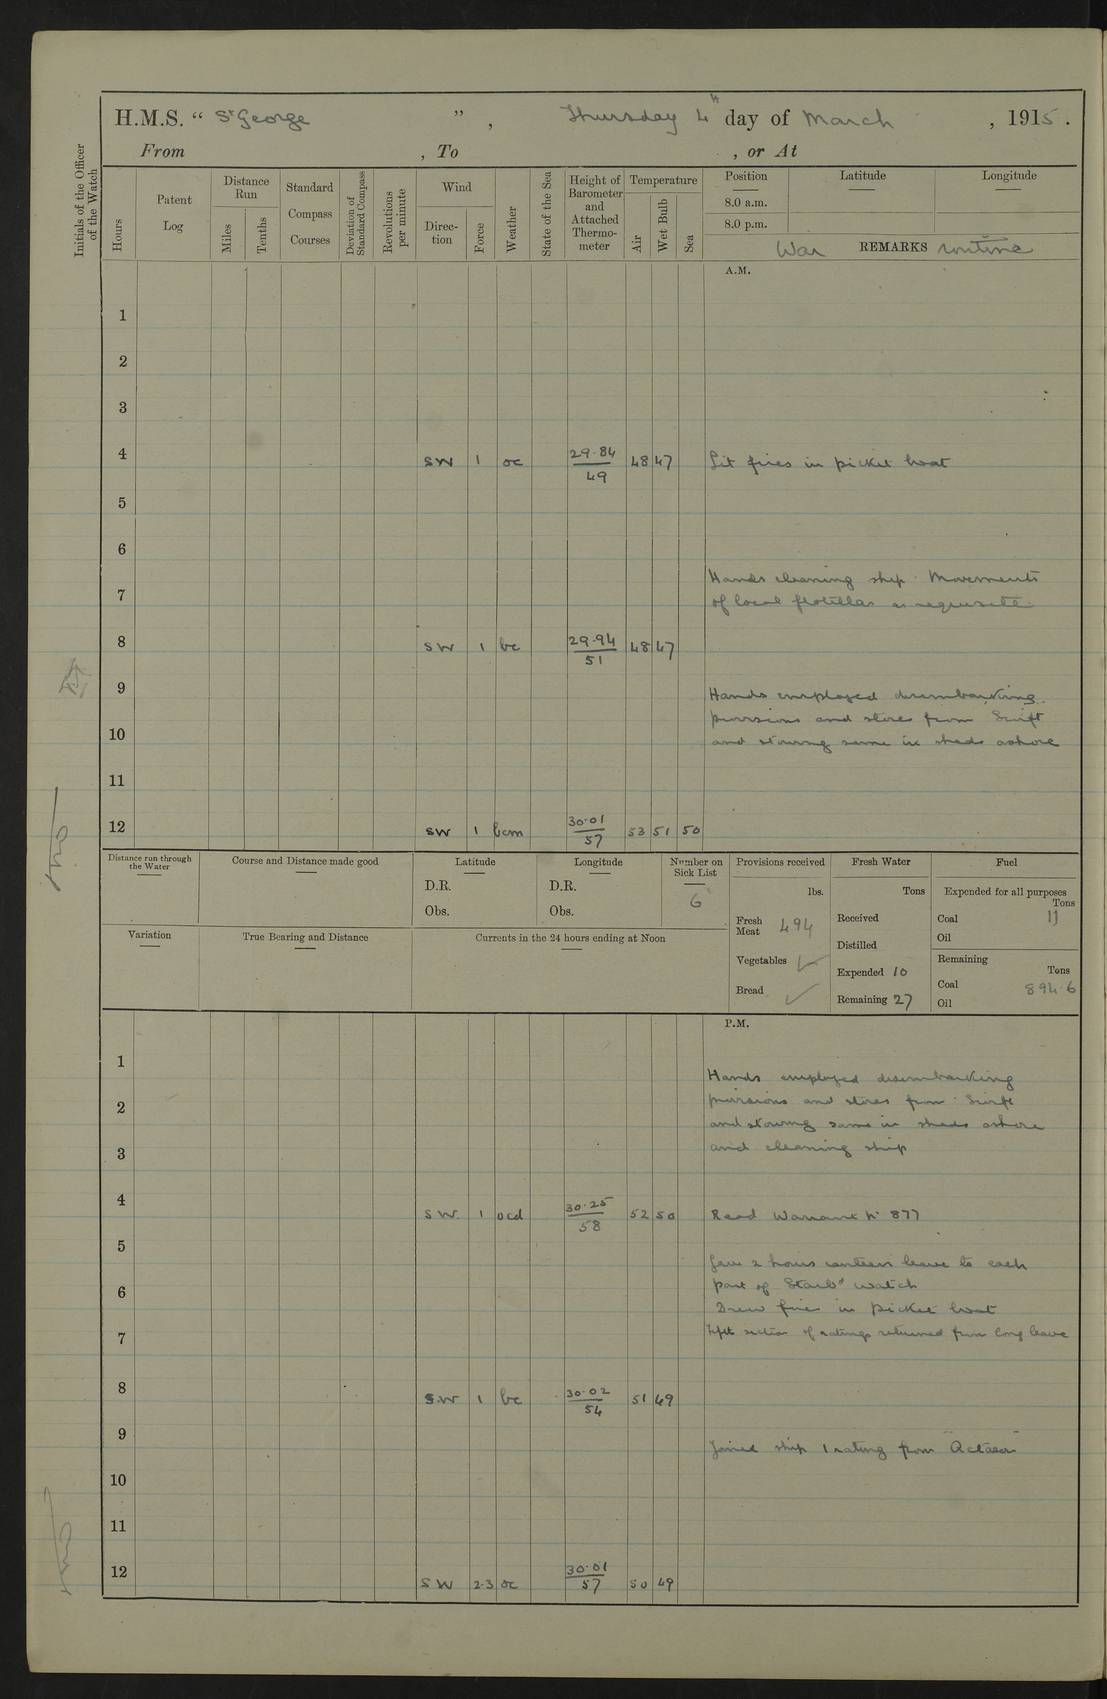 H.M.S. “ St George ” , Thursday 4th day of March , 1915 .
From , To , or At
Initials of the Officer of the Watch
Hours
Patent Log
Distance Run
Miles
Tenths
Standard Compass Courses
Deviation of Standard Compass
Revolutions per minute
Wind
Direction
Force
Weather
State of the Sea
Height of Barometer and Attached Thermometer
Temperature
Air
Wet Bulb
Sea
Position Latitude Longitude
8.0 a.m.
8.0 p.m.
War REMARKS routine
A.M.
1
2
3
4 SW 1 oc 29.84 48 47 Lit fires in picket boat
49
5
6
Hands cleaning ship. Movements
7
of local flotillas as requisite
8 SW 1 bc 29.94 48 47
51
9
Hands employed disembarking
provisions and stores from Swift
10
and stowing same in sheds ashore
11
12 SW 1 bcm 30.01 53 51 50
57
Distance run through the Water
Course and Distance made good
Latitude
D.R.
Obs.
Longitude
D.R.
Obs.
Number on Sick List
6
Provisions received
lbs.
Fresh Meat 494
Vegetables ✓
Bread ✓
Fresh Water
Tons
Received
Distilled
Expended 10
Remaining 27
Fuel
Expended for all purposes
Tons
Coal 11
Oil
Remaining
Tons
Coal 894.6
Oil
Variation
True Bearing and Distance
Currents in the 24 hours ending at Noon
P.M.
1
Hands employed disembarking
2
provisions and stores from Swift
and stowing same in sheds ashore
3
and cleaning ship
4 SW. 1 ocd 30.25 52 50 Read Warrant No 877
58
5
Gave 2 hours canteen leave to each
6
part of Starbd watch
Drew fires in picket boat
7
section of ratings returned from long leave
8 SW 1 bc 30.02 51 49
54
9
Joined ship 1 rating from "Actaeon"
10
11
12 SW 2-3 oc 30.01 50 49
57